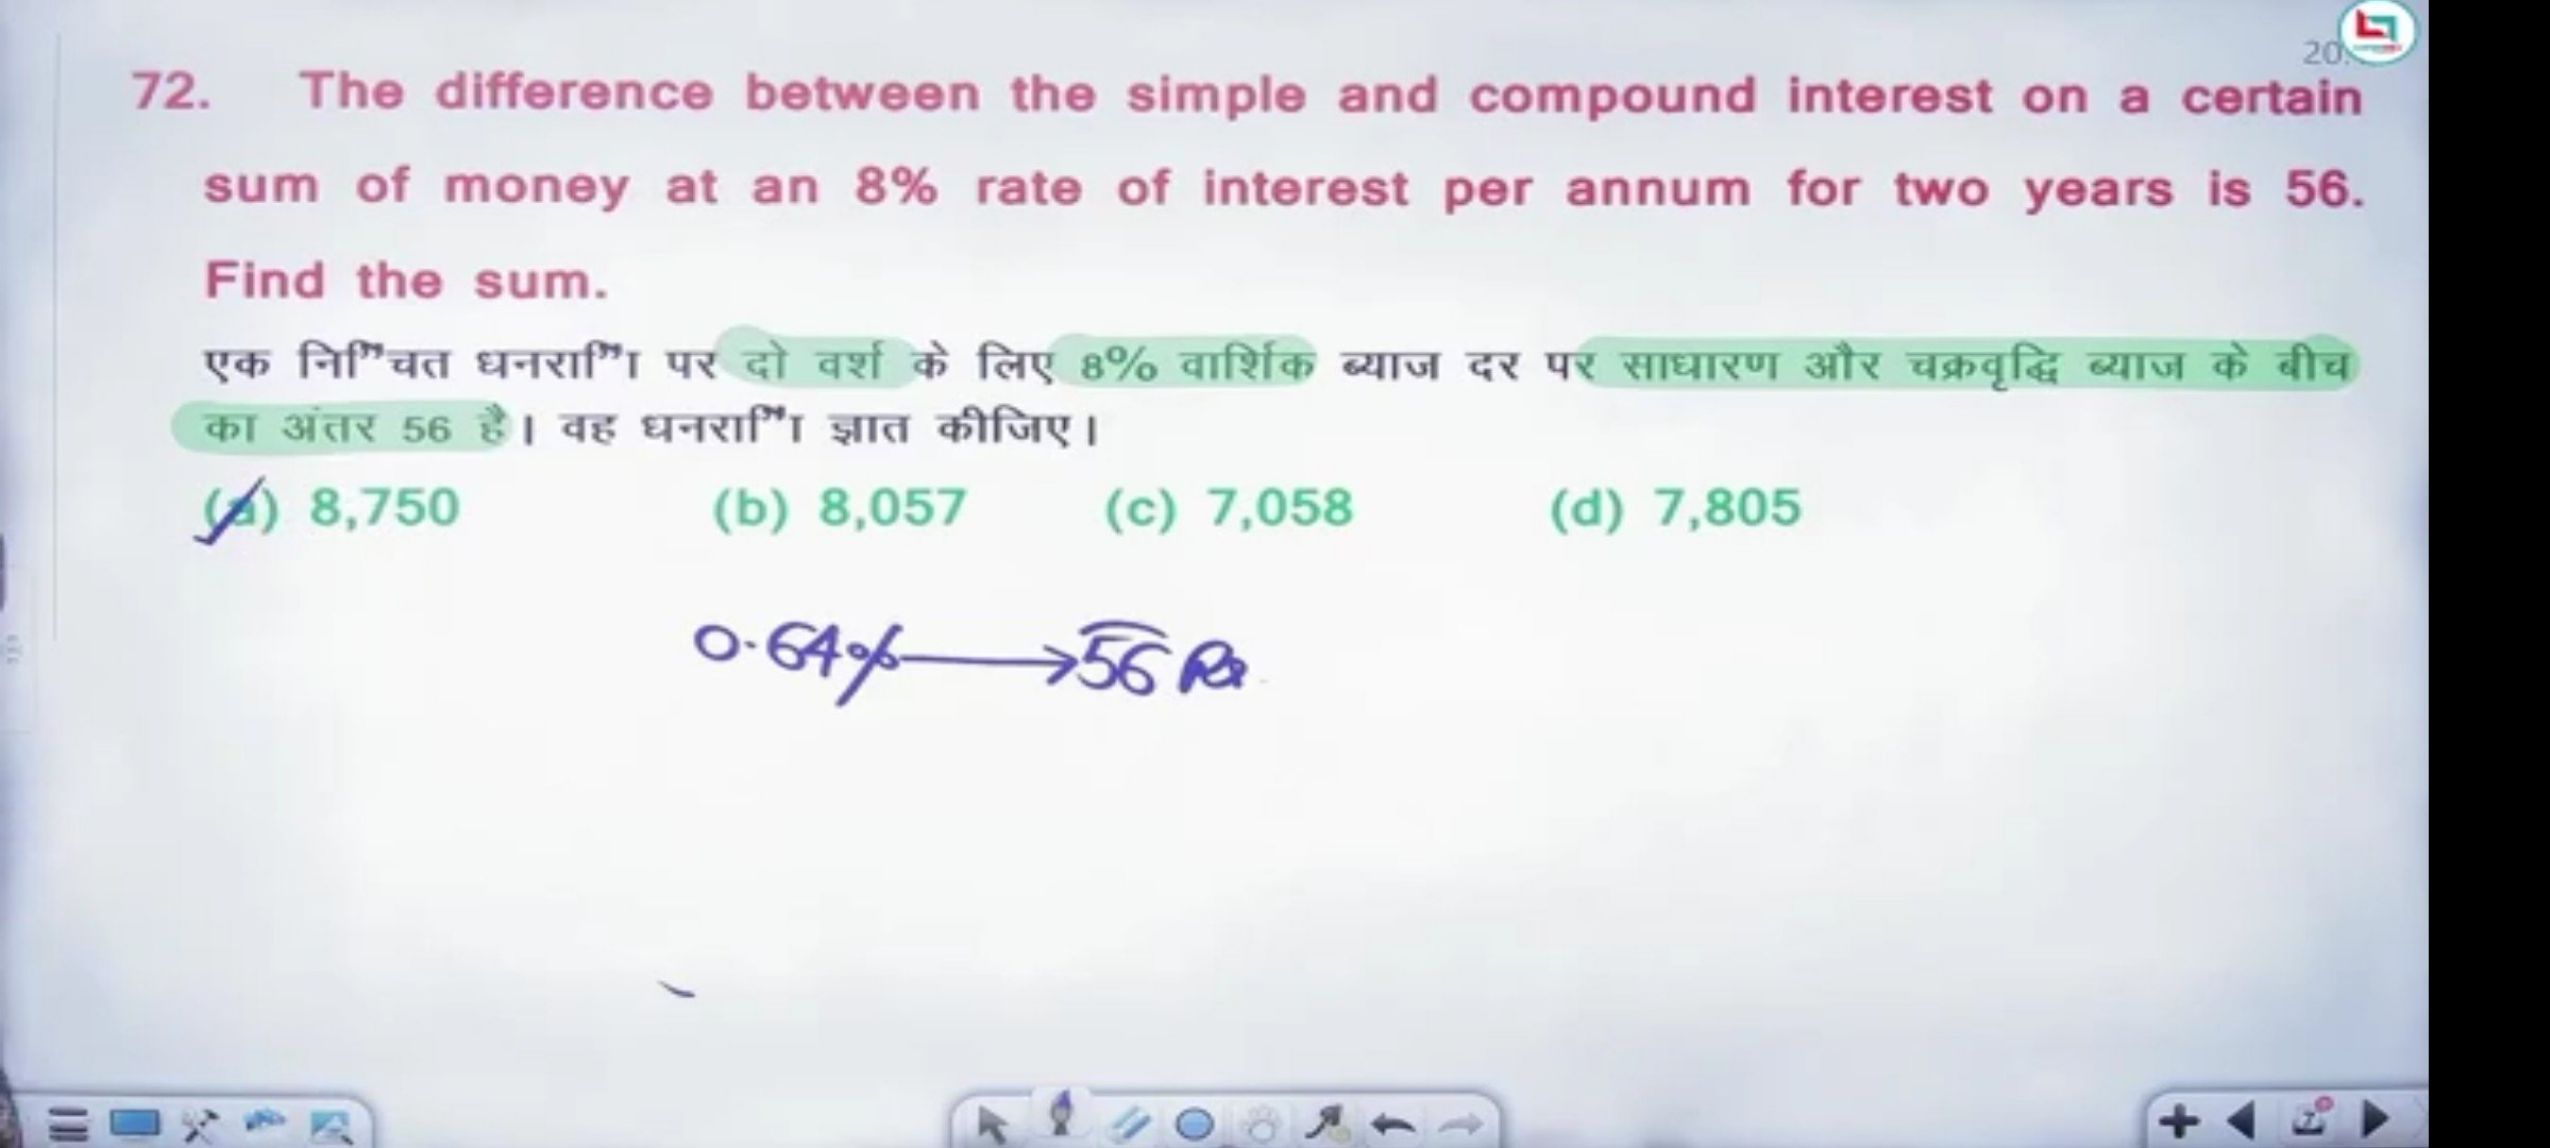 20
72. The difference between the simple and compound interest on a certain
sum of money at an 8% rate of interest per annum for two years is 56.
Find the sum.
एक निश्चित धनराशि पर दो वर्श के लिए 8% वार्शिक ब्याज दर पर साधारण और चक्रवृद्धि ब्याज के बीच
का अंतर 56 है। वह धनराशि ज्ञात कीजिए।
(a) 8,750 (b) 8,057 (c) 7,058 (d) 7,805
0.64% → 56 Rs